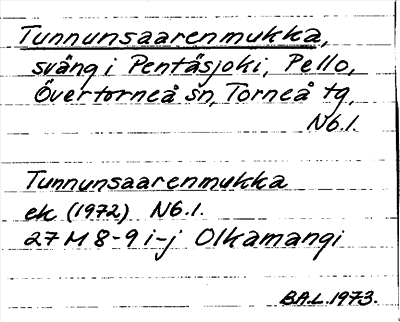 Tunnunsaarenmukka,
sväng i Pentäsjoki, Pello,
Övertorneå sn, Torneå tg,
Nb.l.
Tunnunsaarenmukka
ek (1972) Nb.l.
27 M 8-9 i-j Olkamangi
B.A.L. 1973.